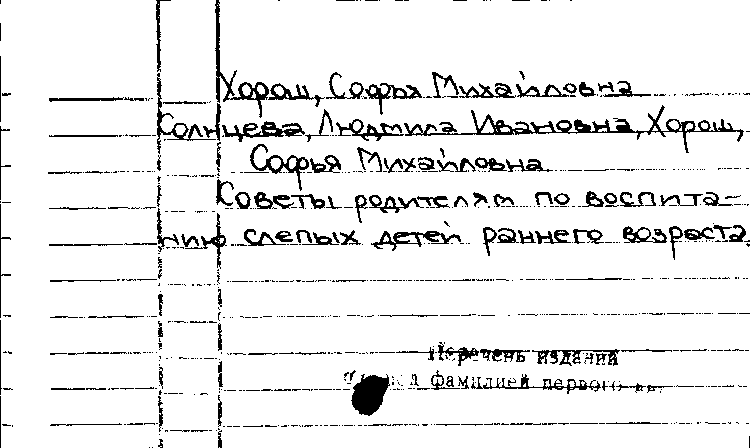 Хорош, Софья Михайловна
Солнцева, Людмила Ивановна, Хорош,
Софья Михайловна
Советы родителям по воспита-
нию слепых детей раннего возраста.
Перечень издании
фамилией первого